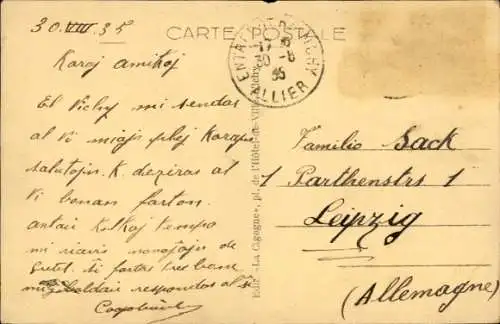 30.VIII.35
CARTE POSTALE
Karaj amikoj
El Vichy mi sendas
al vi miajn plej karajn
salutojn. K. deziras al
vi bonan farton.
antaŭ kelkaj tempo
mi ricevis novaĵojn de
ŝi fartas tre bone
mi baldaŭ respondos al ŝi
17 35
30 -8
35
ALLIER
Edit. «La Cigogne», pl. de l'Hôtel-de-Ville, Vichy
Familio Sack
1 Parthenstrs 1
Leipzig
(Allemagne)